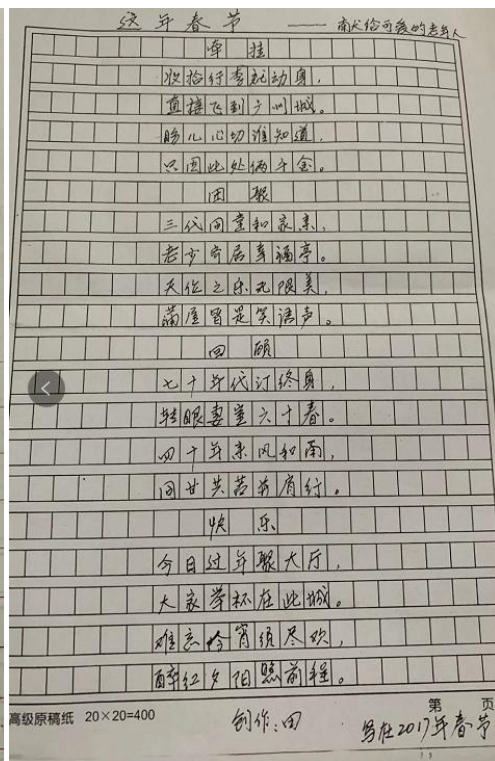 这年春节 —— 献给可爱的老年人
牵挂
收拾行李就动身，
直接飞到广州城。
盼儿心切谁知道，
只因此处俩千金。
团聚
三代同堂和家亲，
老少齐居幸福亭。
天伦之乐无限美，
满屋皆是笑语声。
回顾
七十年代订终身，
转眼妻室六十春。
四十年来风和雨，
同甘共苦并肩行。
快乐
今日过年聚大厅，
大家举杯在此城。
难忘今宵须尽欢，
醉红夕阳照前程。
高级原稿纸 20×20=400
第 页
创作：田
写在2017年春节